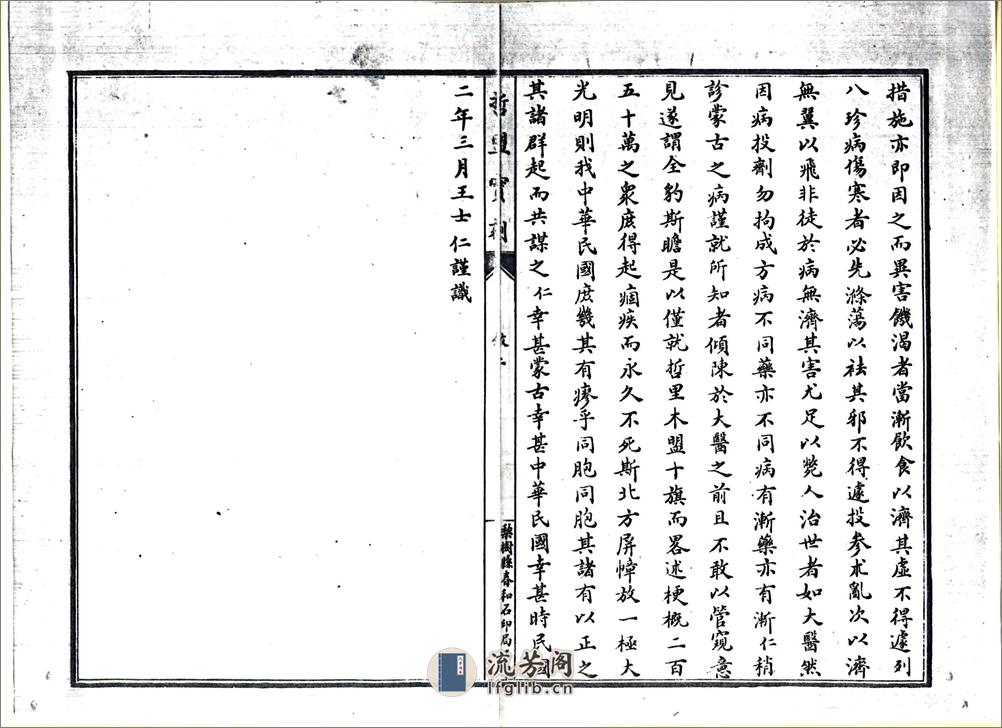 措施亦即因之而異害饑渴者當漸飲食以濟其虛不得遽列
八珍病傷寒者必先滌蕩以祛其邪不得遽投參朮亂次以濟
無翼以飛非徒於病無濟其害尤足以斃人治世者如大醫然
因病投劑勿拘成方病不同藥亦不同病有漸藥亦有漸仁稍
診蒙古之病謹就所知者傾陳於大醫之前且不敢以管窺意
見遂謂全豹斯瞻是以僅就哲里木盟十旗而畧述梗概二百
五十萬之衆庶得起痼疾而永久不死斯北方屏幛放一極大
光明則我中華民國庶幾其有瘳乎同胞同胞其諸有以正之
其諸群起而共謀之仁幸甚蒙古幸甚中華民國幸甚時民國
哲盟實剂
梨樹縣春和石印局
二年三月王士仁謹識
流芳阁
lfglib.cn